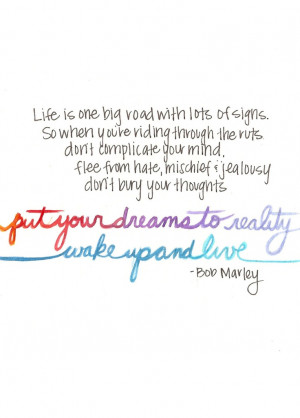 Life is one big road with lots of signs.
So when you're riding through the ruts
don't complicate your mind.
flee from hate, mischief & jealousy
don't bury your thoughts
put your dreams to reality
wake up and live
-Bob Marley